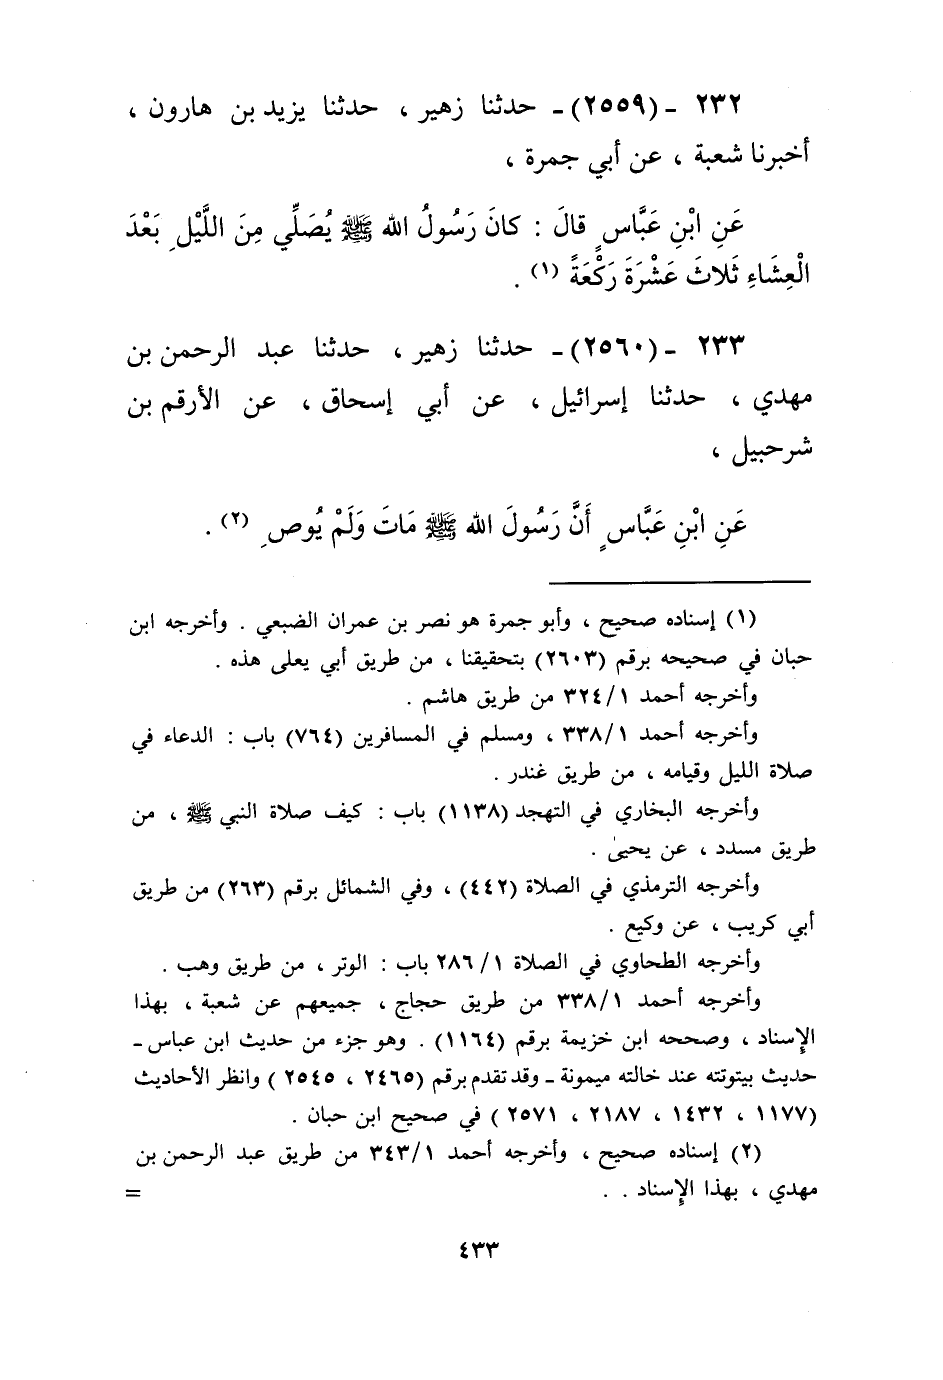 ٢٣٢ ـ (٢٥٥٩) ـ حدثنا زهير ، حدثنا يزيد بن هارون ،
أخبرنا شعبة ، عن أبي جمرة ،
عَنِ ابْنِ عَبَّاسٍ قالَ : كانَ رَسُولُ الله ﷺ يُصَلِّي مِنَ اللَّيْلِ بَعْدَ
الْعِشَاءِ ثَلاثَ عَشْرَةَ رَكْعَةً (١) .
٢٣٣ ـ (٢٥٦٠) ـ حدثنا زهير ، حدثنا عبد الرحمن بن
مهدي ، حدثنا إسرائيل ، عن أبي إسحاق ، عن الأرقم بن
شرحبيل ،
عَنِ ابْنِ عَبَّاسٍ أَنَّ رَسُولَ الله ﷺ مَاتَ وَلَمْ يُوصِ (٢) .
(١) إسناده صحيح ، وأبو جمرة هو نصر بن عمران الضبعي . وأخرجه ابن
حبان في صحيحه برقم (٢٦٠٣) بتحقيقنا ، من طريق أبي يعلى هذه .
وأخرجه أحمد ٣٢٤/١ من طريق هاشم .
وأخرجه أحمد ٣٣٨/١ ، ومسلم في المسافرين (٧٦٤) باب : الدعاء في
صلاة الليل وقيامه ، من طريق غندر .
وأخرجه البخاري في التهجد (١١٣٨) باب : كيف صلاة النبي ﷺ ، من
طريق مسدد ، عن يحيىٰ .
وأخرجه الترمذي في الصلاة (٤٤٢) ، وفي الشمائل برقم (٢٦٣) من طريق
أبي كريب ، عن وكيع .
وأخرجه الطحاوي في الصلاة ٢٨٦/١ باب : الوتر ، من طريق وهب .
وأخرجه أحمد ٣٣٨/١ من طريق حجاج ، جميعهم عن شعبة ، بهذا
الإسناد ، وصححه ابن خزيمة برقم (١١٦٤) . وهو جزء من حديث ابن عباس ـ
حديث بيتوتته عند خالته ميمونة ـ وقد تقدم برقم (٢٤٦٥ ، ٢٥٤٥ ) وانظر الأحاديث
(١١٧٧ ، ١٤٣٢ ، ٢١٨٧ ، ٢٥٧١ ) في صحيح ابن حبان .
(٢) إسناده صحيح ، وأخرجه أحمد ٣٤٣/١ من طريق عبد الرحمن بن
مهدي ، بهذا الإسناد . . =
٤٣٣